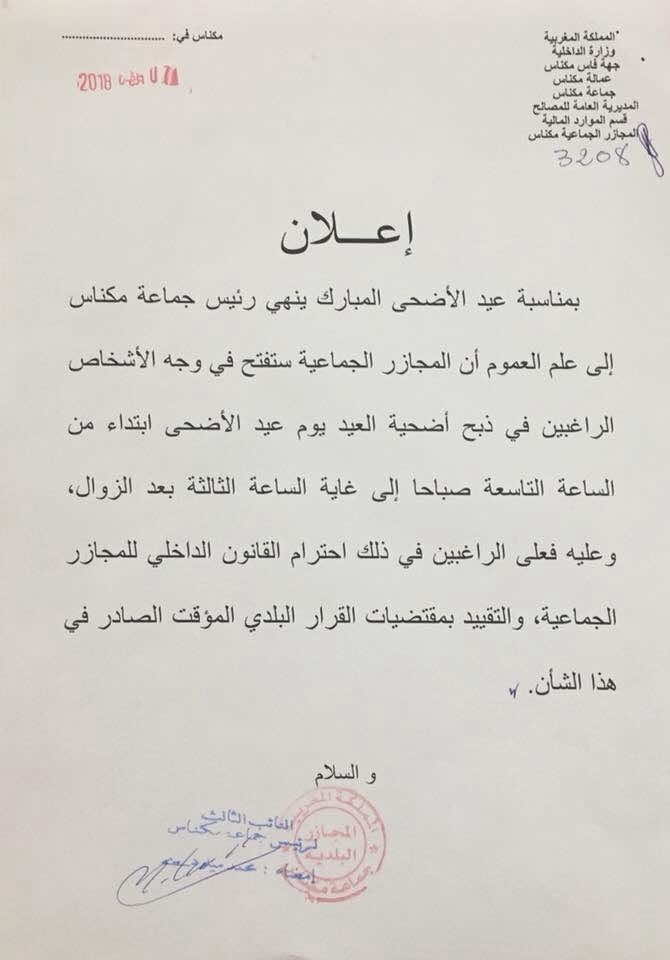 المملكة المغربية
وزارة الداخلية
جهة فاس مكناس
عمالة مكناس
جماعة مكناس
المديرية العامة للمصالح
قسم الموارد المالية
المجازر الجماعية مكناس
3208
مكناس في: ..............................
2018
إعـــلان
بمناسبة عيد الأضحى المبارك ينهي رئيس جماعة مكناس
إلى علم العموم أن المجازر الجماعية ستفتح في وجه الأشخاص
الراغبين في ذبح أضحية العيد يوم عيد الأضحى ابتداء من
الساعة التاسعة صباحا إلى غاية الساعة الثالثة بعد الزوال،
وعليه فعلى الراغبين في ذلك احترام القانون الداخلي للمجازر
الجماعية، والتقييد بمقتضيات القرار البلدي المؤقت الصادر في
هذا الشأن.
و السلام
النائب الثالث
لرئيس جماعة مكناس
إمضاء :
المملكة المغربية
المجازر
البلدية
جماعة مكناس